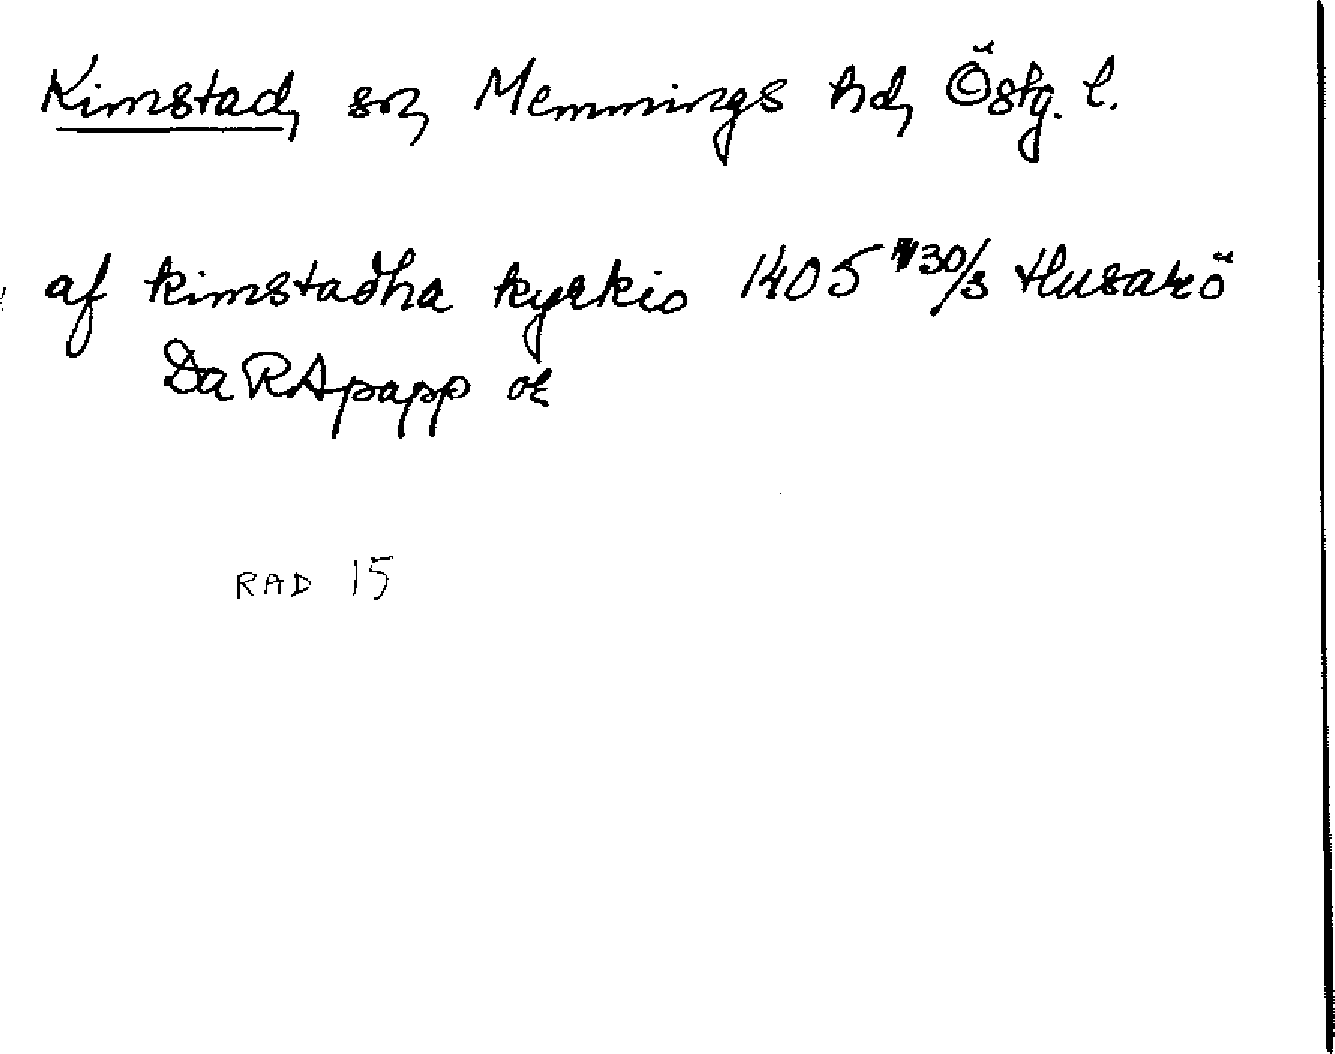 Kimstad, sn, Memmings hd, Östg. l.
af kimstadha kyrkio 1405 30/3 Husarö
Da RApapp or
RAD 15